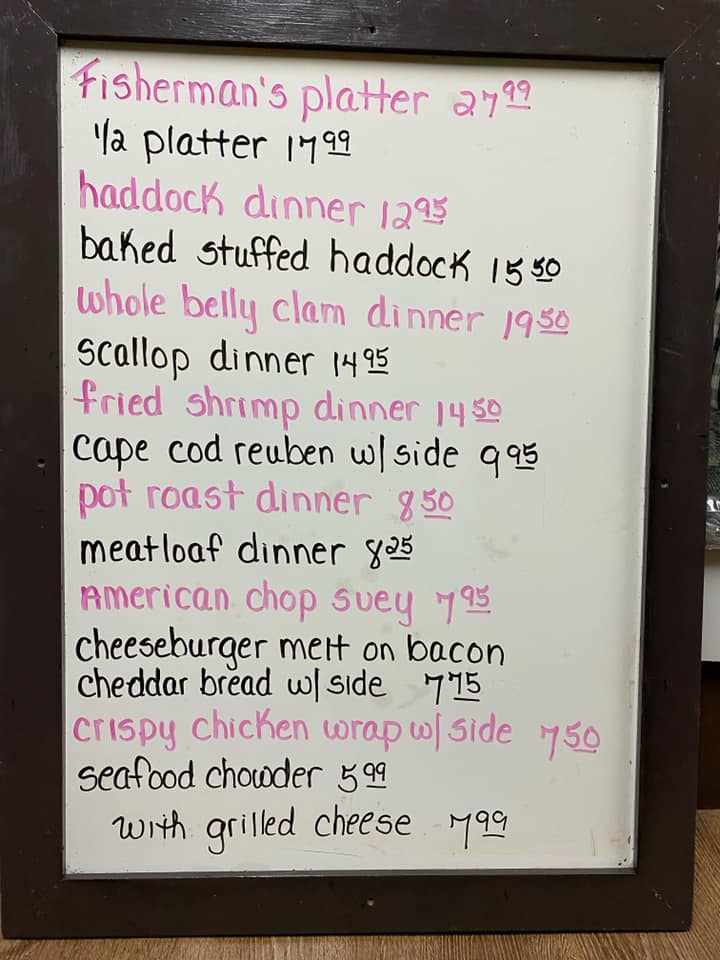 Fisherman's platter 27 99
1/2 platter 17 99
haddock dinner 12 95
baked stuffed haddock 15 50
whole belly clam dinner 19 50
scallop dinner 14 95
fried shrimp dinner 14 50
cape cod reuben w/ side 9 95
pot roast dinner 8 50
meatloaf dinner 8 25
American chop suey 7 95
cheeseburger melt on bacon
cheddar bread w/ side 7 75
crispy chicken wrap w/ side 7 50
seafood chowder 5 99
with grilled cheese 7 99